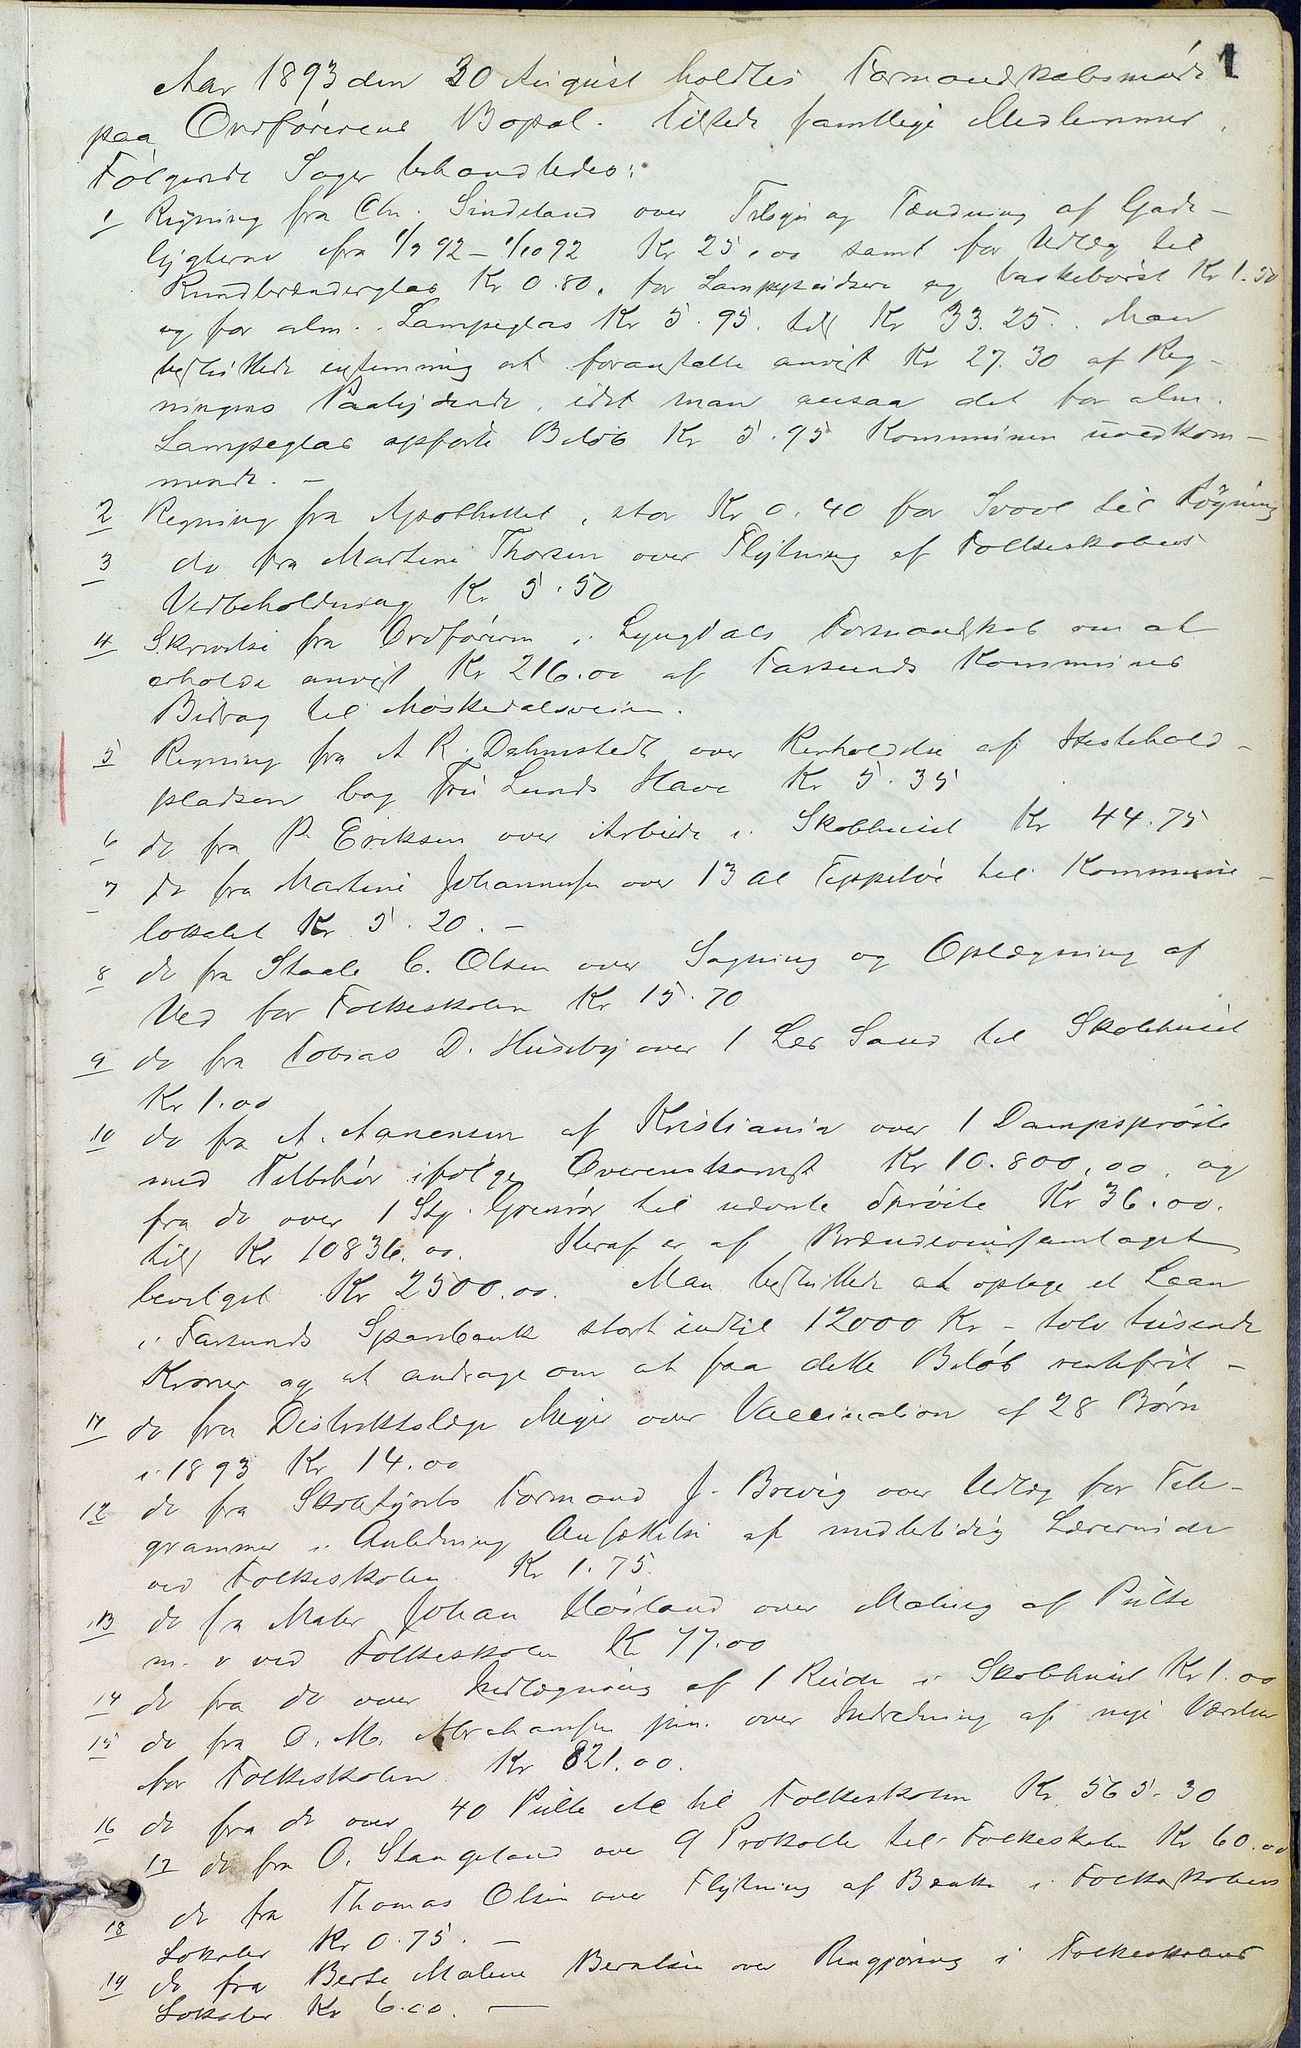 1
Aar 1893 den 30 August holdtes Formandskabsmøde
paa Ordførerens Bopæl. Tilstede samtlige Medlemmer.
Følgende Sager behandledes:
1 Regning fra Chr. Sindeland over Tilsyn og Tænding af Gade-
lygterne fra 1/9 92 – 1/10 92 Kr 25.00 samt for Udlæg til
Rundbrænderglas Kr 0.80. for Lampesaidsere og Vaskebørst Kr 1.50
og for alm. Lampeglas Kr 5.95. tils Kr 33.25. Man
besluttede enstemmig at foranstalte anvist Kr 27.30 af Reg-
ningens Paalydende, idet man ansaa det for alm.
Lampeglas opførte Beløb Kr 5.95 Kommunen uvedkom-
mende. –
2 Regning fra Apotheket, stor Kr 0.40 for Svovl til Røgning
3 do fra Martine Thorsen over Flytning af Folkeskolens
Vedbeholdning Kr 5.50
4 Skrivelse fra Ordføreren i Lyngdals Formandskab om at
erholde anvist Kr 216.00 af Farsunds Kommunes
Bidrag til Møskedalsveien.
5 Regning fra A R. Dahmstedt over Renholdelse af Hestehold-
pladsen bag Fru Lunds Have Kr 5.35
6 do fra P. Eriksen over Arbeide i Skolehuset Kr 44.75
7 do fra Martine Johannesen over 13 al Teppetøi til Kommune-
lokalet Kr 5.20. –
8 do fra Staale C. Olsen over Sagning og Oplægning af
Ved for Folkeskolen Kr 15.70
9 do fra Tobias D. Huseby over 1 Læs Sand til Skolehuset
Kr 1.00
10 do fra A. Aanensen af Kristiania over 1 Dampsprøite
med Tilbehør ifølge Overenskomst Kr 10.800.00. og
fra do over 1 Stg. Grenrør til udvorte Sprøite Kr 36.00.
tils Kr 10836.00. Heraf er af Brændevinssamlaget
bevilget Kr 2500.00. Man besluttede at optage et Laan
i Farsunds Sparebank stort indtil 12000 Kr – tolv tusende
Kroner og at andrage om at faa dette Beløb rentefrit –
11 do fra Distriktslæge Meyer over Vaccination af 28 Børn
i 1893 Kr 14.00
12 do fra Skolestyrets Formand J. Brevig over Udlæg for Tele-
grammer i Anledning Ansættelse af midlertidig Lærerinde
ved Folkeskolen. Kr 1.75.
13 do fra Maler Johan Høiland over Maling af Pulte
m. v ved Folkeskolen Kr 77.00
14 do fra do over Indlægning af 1 Rude i Skolehuset Kr 1.00
15 do fra O. M. Abrahamsen jun. over Indredning af nye Værelser
for Folkeskolen Kr 821.00.
16 do fra do over 40 Pulte etc til Folkeskolen Kr 565.30
17 do fra O. Stangeland over 9 Protokolle til Folkeskolen Kr 60.00
18 do fra Thomas Olsen over Flytning af Bænke i Folkeskolens
Lokaler Kr 0.75. –
19 do fra Berte Malene Berntsen over Rengjøring i Folkeskolens
Lokaler Kr 6.00. –